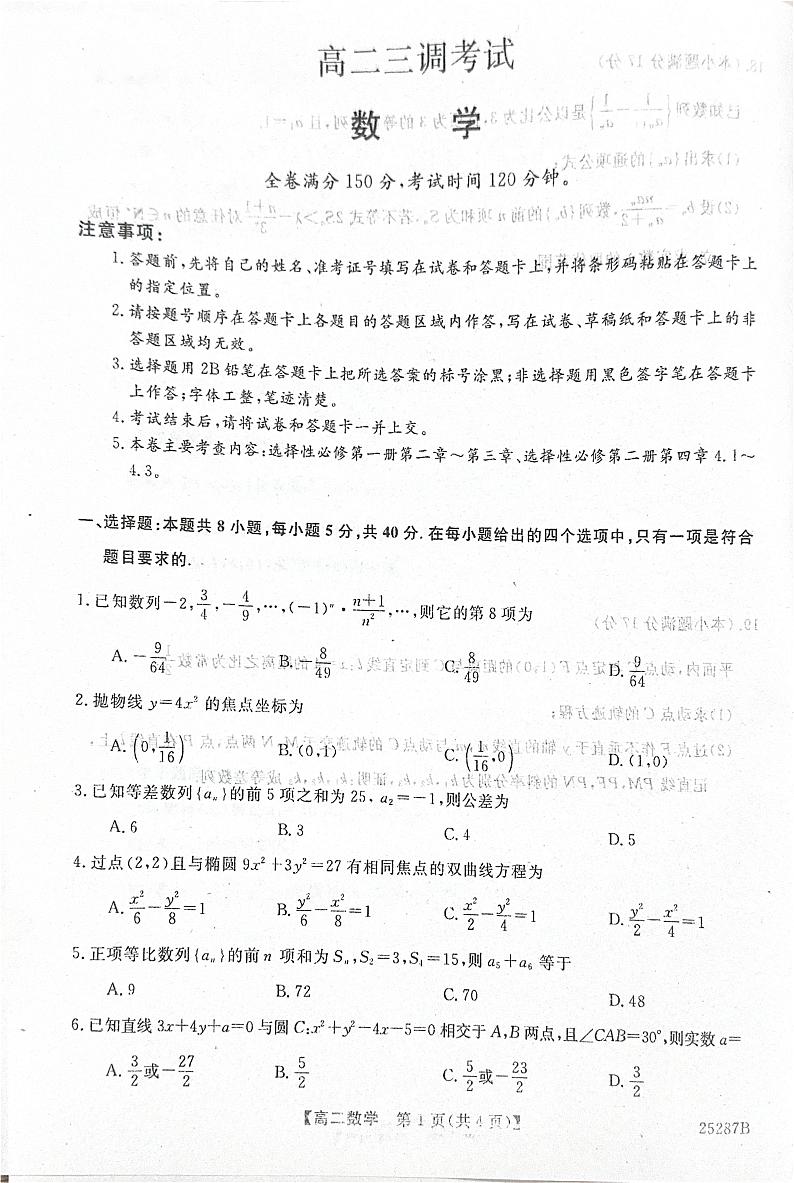 高二三调考试
数 学
全卷满分 150 分,考试时间 120 分钟。
注意事项:
1. 答题前,先将自己的姓名、准考证号填写在试卷和答题卡上,并将条形码粘贴在答题卡上
的指定位置。
2. 请按题号顺序在答题卡上各题目的答题区域内作答,写在试卷、草稿纸和答题卡上的非
答题区域均无效。
3. 选择题用 2B 铅笔在答题卡上把所选答案的标号涂黑;非选择题用黑色签字笔在答题卡
上作答;字体工整,笔迹清楚。
4. 考试结束后,请将试卷和答题卡一并上交。
5. 本卷主要考查内容:选择性必修第一册第二章~第三章、选择性必修第二册第四章 4.1~
4.3。
一、选择题:本题共 8 小题,每小题 5 分,共 40 分. 在每小题给出的四个选项中,只有一项是符合
题目要求的.
1. 已知数列 -2, 3/4, -4/9, …, (-1)ⁿ · (n+1)/n², …,则它的第 8 项为
A. -9/64 B. -8/49 C. 8/49 D. 9/64
2. 抛物线 y=4x² 的焦点坐标为
A. (0, 1/16) B. (0,1) C. (1/16, 0) D. (1,0)
3. 已知等差数列{aₙ}的前 5 项之和为 25, a₂=-1,则公差为
A. 6 B. 3 C. 4 D. 5
4. 过点(2,2)且与椭圆 9x²+3y²=27 有相同焦点的双曲线方程为
A. x²/6-y²/8=1 B. y²/6-x²/8=1 C. x²/2-y²/4=1 D. y²/2-x²/4=1
5. 正项等比数列{aₙ}的前 n 项和为 Sₙ,S₂=3,S₄=15,则 a₅+a₆ 等于
A. 9 B. 72 C. 70 D. 48
6. 已知直线 3x+4y+a=0 与圆 C:x²+y²-4x-5=0 相交于 A,B 两点,且∠CAB=30°,则实数 a=
A. 3/2或-27/2 B. 5/2 C. 5/2或-23/2 D. 3/2
【高二数学 第 1 页(共 4 页)】
25287B